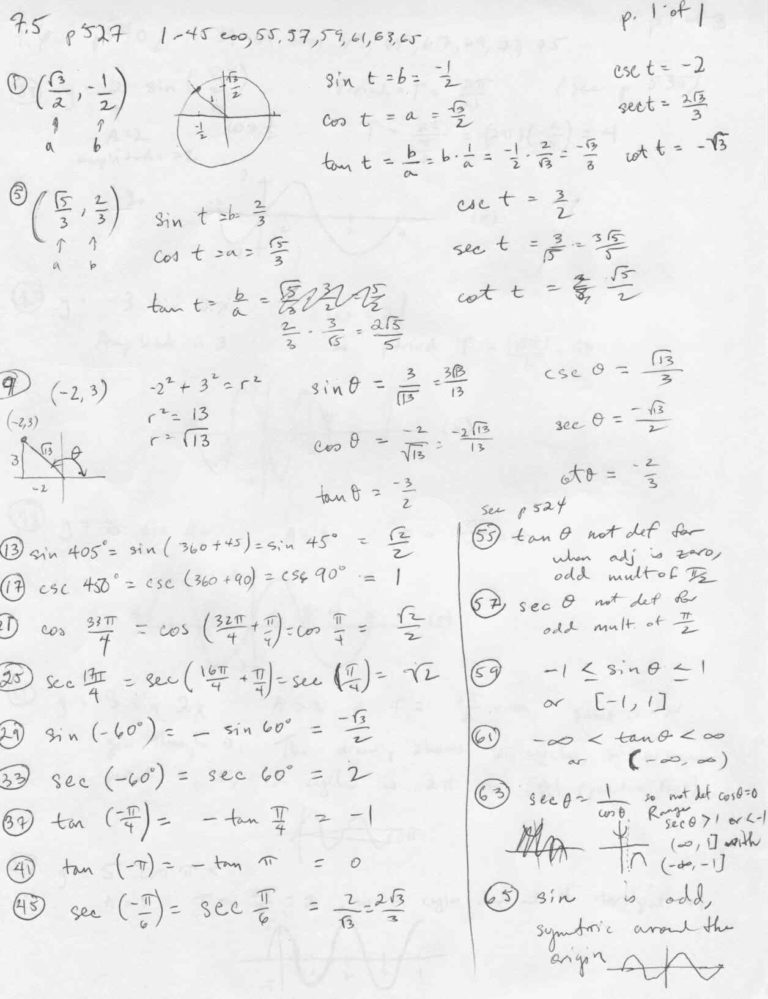 7.5 p527 1-45 eoo, 55, 57, 59, 61, 63, 65
p. 1 of 1
① (√3/2, -1/2)
a b
√3/2
1
-1/2
sin t = b = -1/2
cos t = a = √3/2
tan t = b/a = b · 1/a = -1/2 · 2/√3 = -√3/3
csc t = -2
sec t = 2√3/3
cot t = -√3
⑤ (√5/3, 2/3)
a b
sin t = b = 2/3
cos t = a = √5/3
tan t = b/a =
2/3 · 3/√5 = 2√5/5
csc t = 3/2
sec t = 3/√5 = 3√5/5
cot t = √5/2
⑨ (-2, 3)
(-2,3)
3 √13 θ
-2
-2² + 3² = r²
r² = 13
r = √13
sin θ = 3/√13 = 3√13/13
cos θ = -2/√13 = -2√13/13
tan θ = -3/2
csc θ = √13/3
sec θ = -√13/2
cot θ = -2/3
⑬ sin 405° = sin (360+45) = sin 45° = √2/2
⑰ csc 450° = csc (360+90) = csc 90° = 1
㉑ cos 33π/4 = cos (32π/4 + π/4) = cos π/4 = √2/2
㉕ sec 17π/4 = sec (16π/4 + π/4) = sec (π/4) = √2
㉙ sin (-60°) = - sin 60° = -√3/2
㉝ sec (-60°) = sec 60° = 2
㊲ tan (-π/4) = - tan π/4 = -1
㊶ tan (-π) = - tan π = 0
㊺ sec (-π/6) = sec π/6 = 2/√3 = 2√3/3
see p 524
(55) tan θ not def for
when adj is zero,
odd mult of π/2
(57) sec θ not def for
odd mult of π/2
(59) -1 ≤ sin θ ≤ 1
or [-1, 1]
(61) -∞ < tan θ < ∞
or (-∞, ∞)
(63) sec θ = 1/cos θ so not def cos θ=0
Range
sec θ > 1 or < -1
(∞, 1] with
(-∞, -1]
(65) sin is odd,
symtric around the
origin